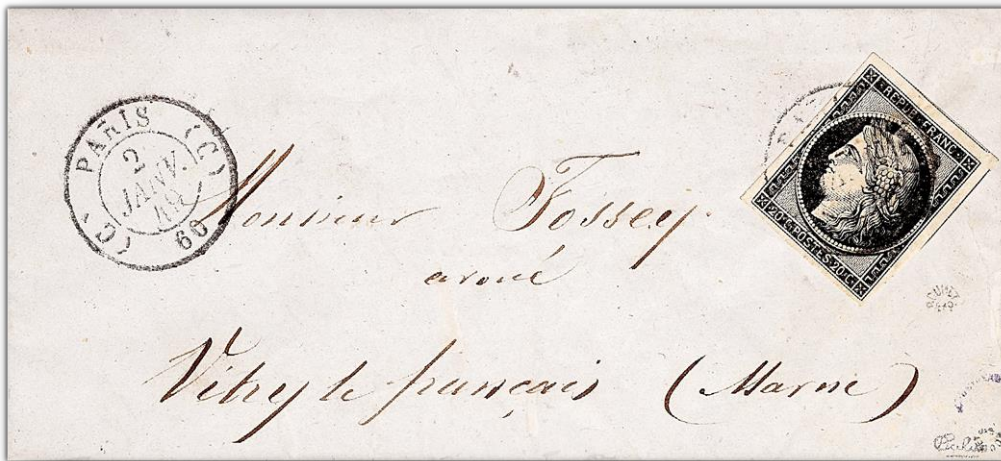 PARIS (C)
2
JANV.
49
60
REPUB. FRANC.
20.C. POSTES. 20.C
Monsieur Fossey
avoué
Vitry le français (Marne)